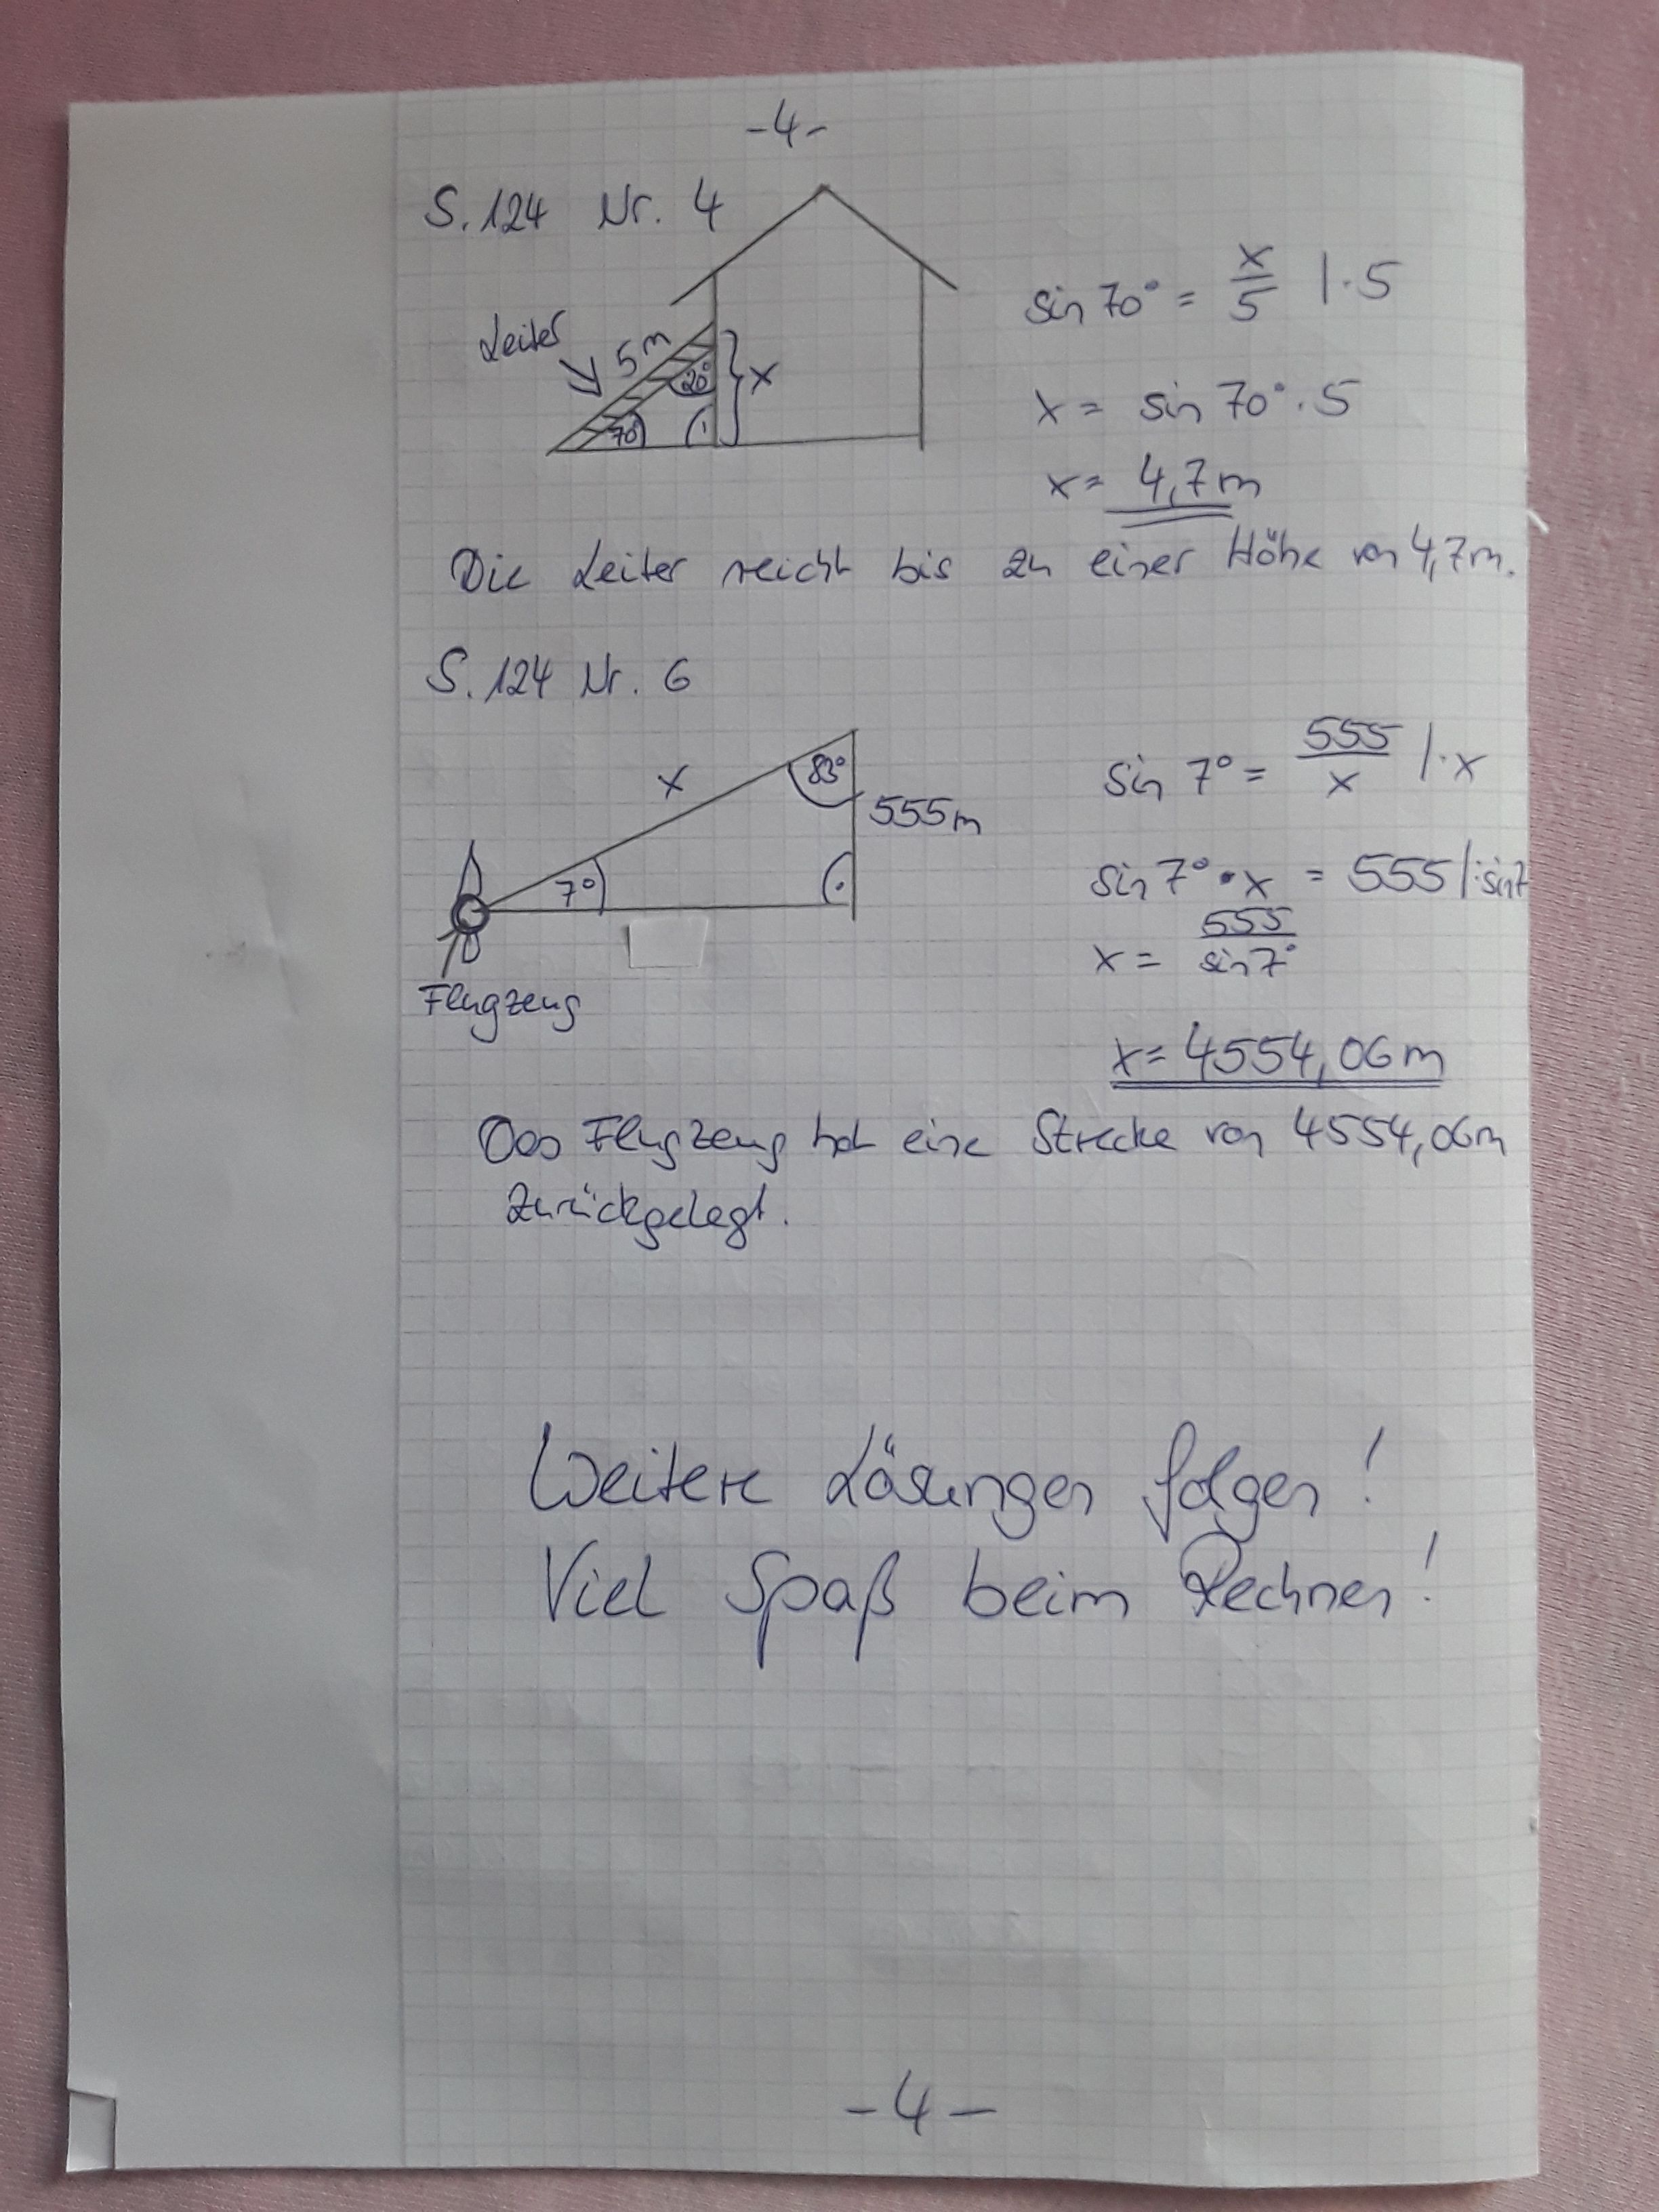 -4-
S. 124 Nr. 4
Leiter
5 m
20°
70°
x
sin 70° = x/5 | · 5
x = sin 70° · 5
x = 4,7m
Die Leiter reicht bis zu einer Höhe von 4,7m.
S. 124 Nr. 6
x
83°
555m
7°
Flugzeug
sin 7° = 555/x | · x
sin 7° · x = 555 | : sin 7
x = 555/sin 7°
x = 4554,06m
Das Flugzeug hat eine Strecke von 4554,06m
zurückgelegt.
Weitere Lösungen folgen!
Viel Spaß beim Rechnen!
-4-